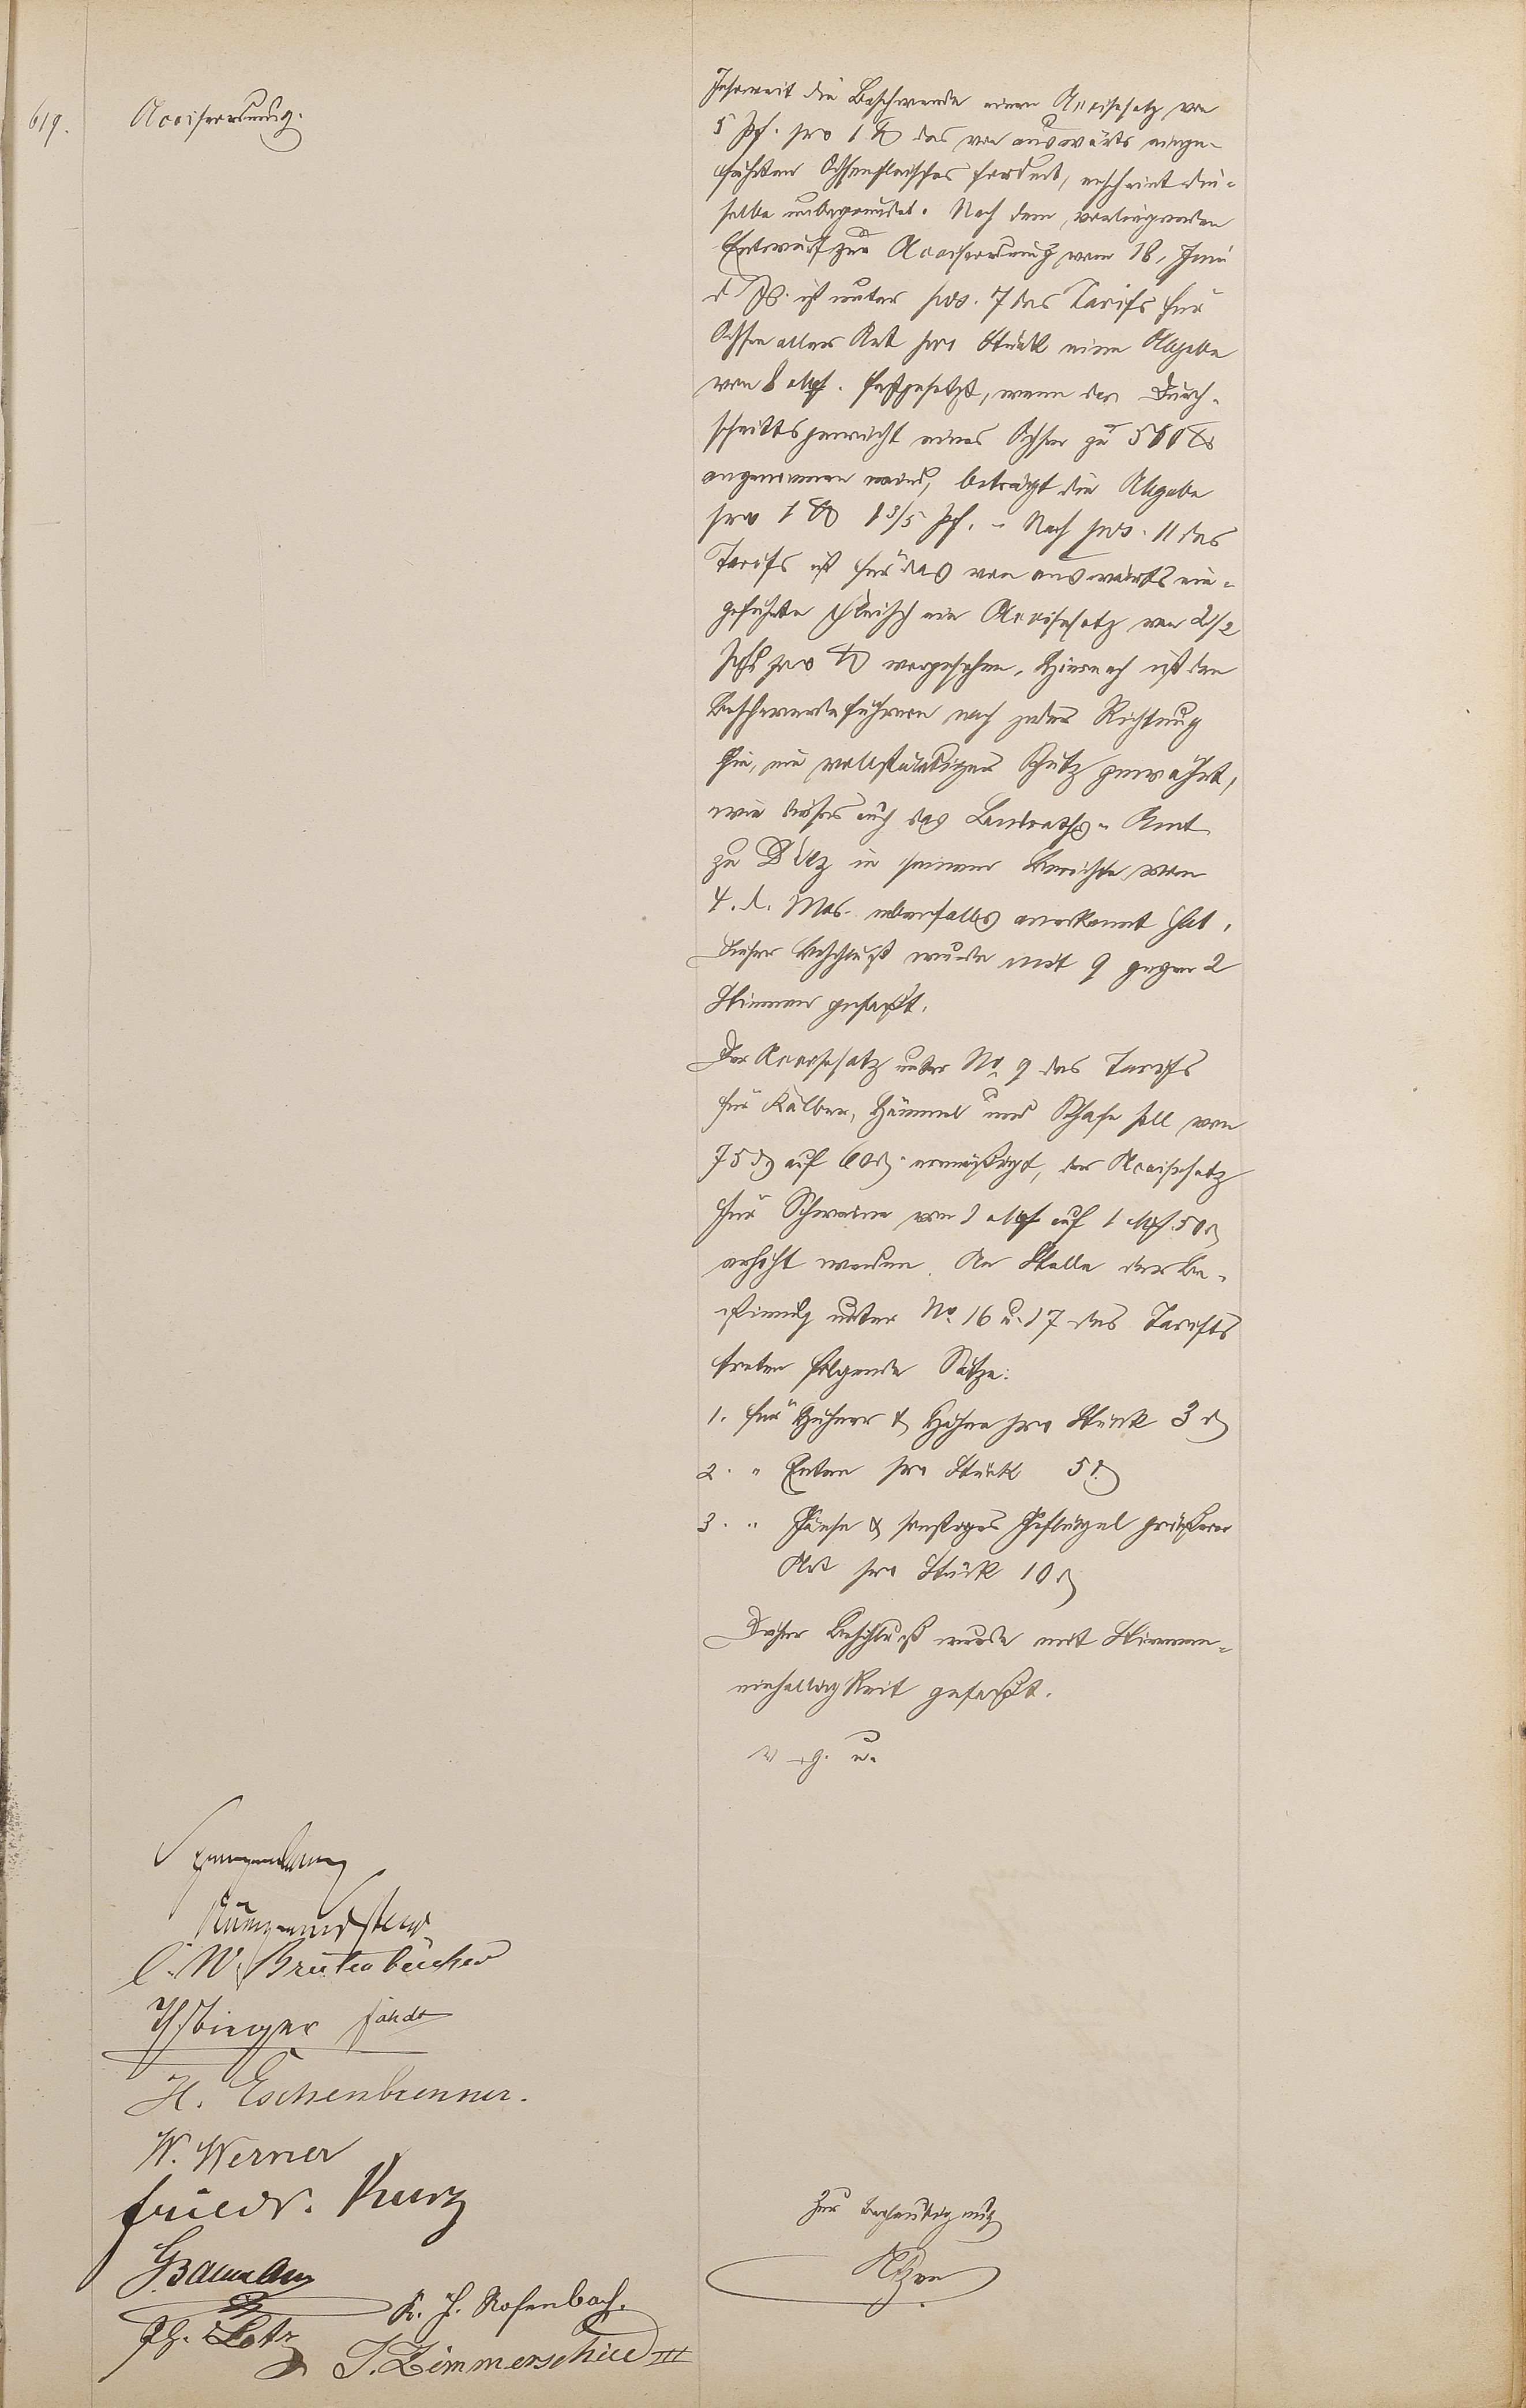 619.
Acciseordnung.
Insoweit die Beschwerde einen Accisesatz von
5 Pf. pro 1 ℔ des von auswärts einge-
führten Ochsenfleisches fordert, erscheint die-
selbe unbegründet. Nach dem vorliegenden
Entwurf zur Acciseordnung vom 18. Juni
d. Js. ist unter pos. 7 des Tarifs für
Ochsen aller Art pro Stück eine Abgabe
von 8 Mk. festgesetzt, wenn das Durch-
schnittsgewicht eines Ochsen zu 500 ℔
angenommen wird, beträgt die Abgabe
pro 1 ℔ 1 3/5 Pf. - Nach pos. 11 des
Tarifs ist für das von auswärts ein-
geführte Fleisch ein Accisesatz von 2 1/2
Pf. pro ℔ vorgesehen. Hiernach ist den
Beschwerdeführern nach jeder Richtung
hin, ein vollständiger Schutz gewährt,
wie dieses auch das Landraths-Amt
zu Diez in seinem Berichte vom
4. d. Mts. ebenfalls anerkannt hat.
Dieser Beschluß wurde mit 9 gegen 2
Stimmen gefaßt.
Der Accisesatz unter No. 9 des Tarifs
für Kälber, Hämmel und Schafe soll von
75 ₰ auf 60 ₰ ermäßigt, der Accisesatz
für Schweine von 1 Mk auf 1 Mk. 50 ₰
erhöht werden. An Stelle der Be-
stimmung unter No. 16 u. 17 des Tarifs
treten folgende Sätze:
1. für Hühner & Hahnen pro Stück 3 ₰
2. " Enten pro Stück 5 ₰
3. " Gänse & sonstiges Geflügel größerer
Art pro Stück 10 ₰
Dieser Beschluß wurde mit Stimmen-
einhelligkeit gefaßt.
v. g. u.
Spangenberg
Bürgermeister
C. W. Breitenbücher
H. Eschenbrenner.
W. Werner
Friedr. Kurz
Baumann
K. H. Rosenbach.
Ph. Lotz
J. Zimmerschied III
Zur Beglaubigung